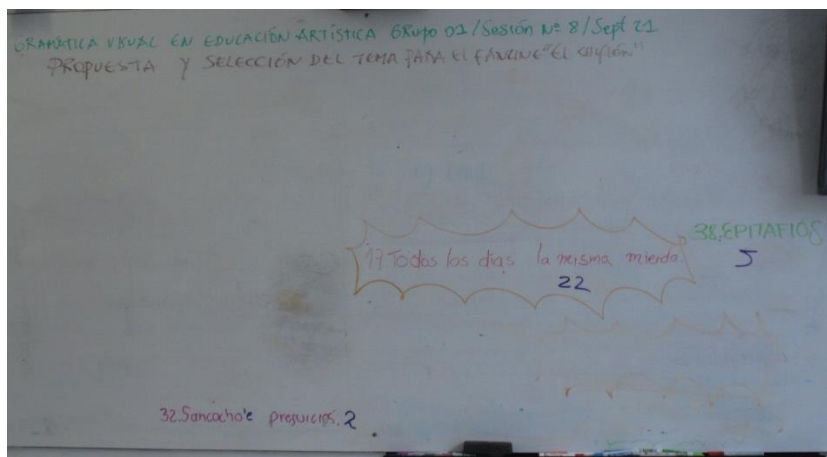 GRAMÁTICA VISUAL EN EDUCACIÓN ARTÍSTICA GRUPO 01/Sesión Nº 8/Sept 21
PROPUESTA Y SELECCIÓN DEL TEMA PARA El FANZINE "El COYIÓN"
38. EPITAFIOS
5
17 Todos los días la misma mierda.
22
32. Sancocho'e prejuicios. 2